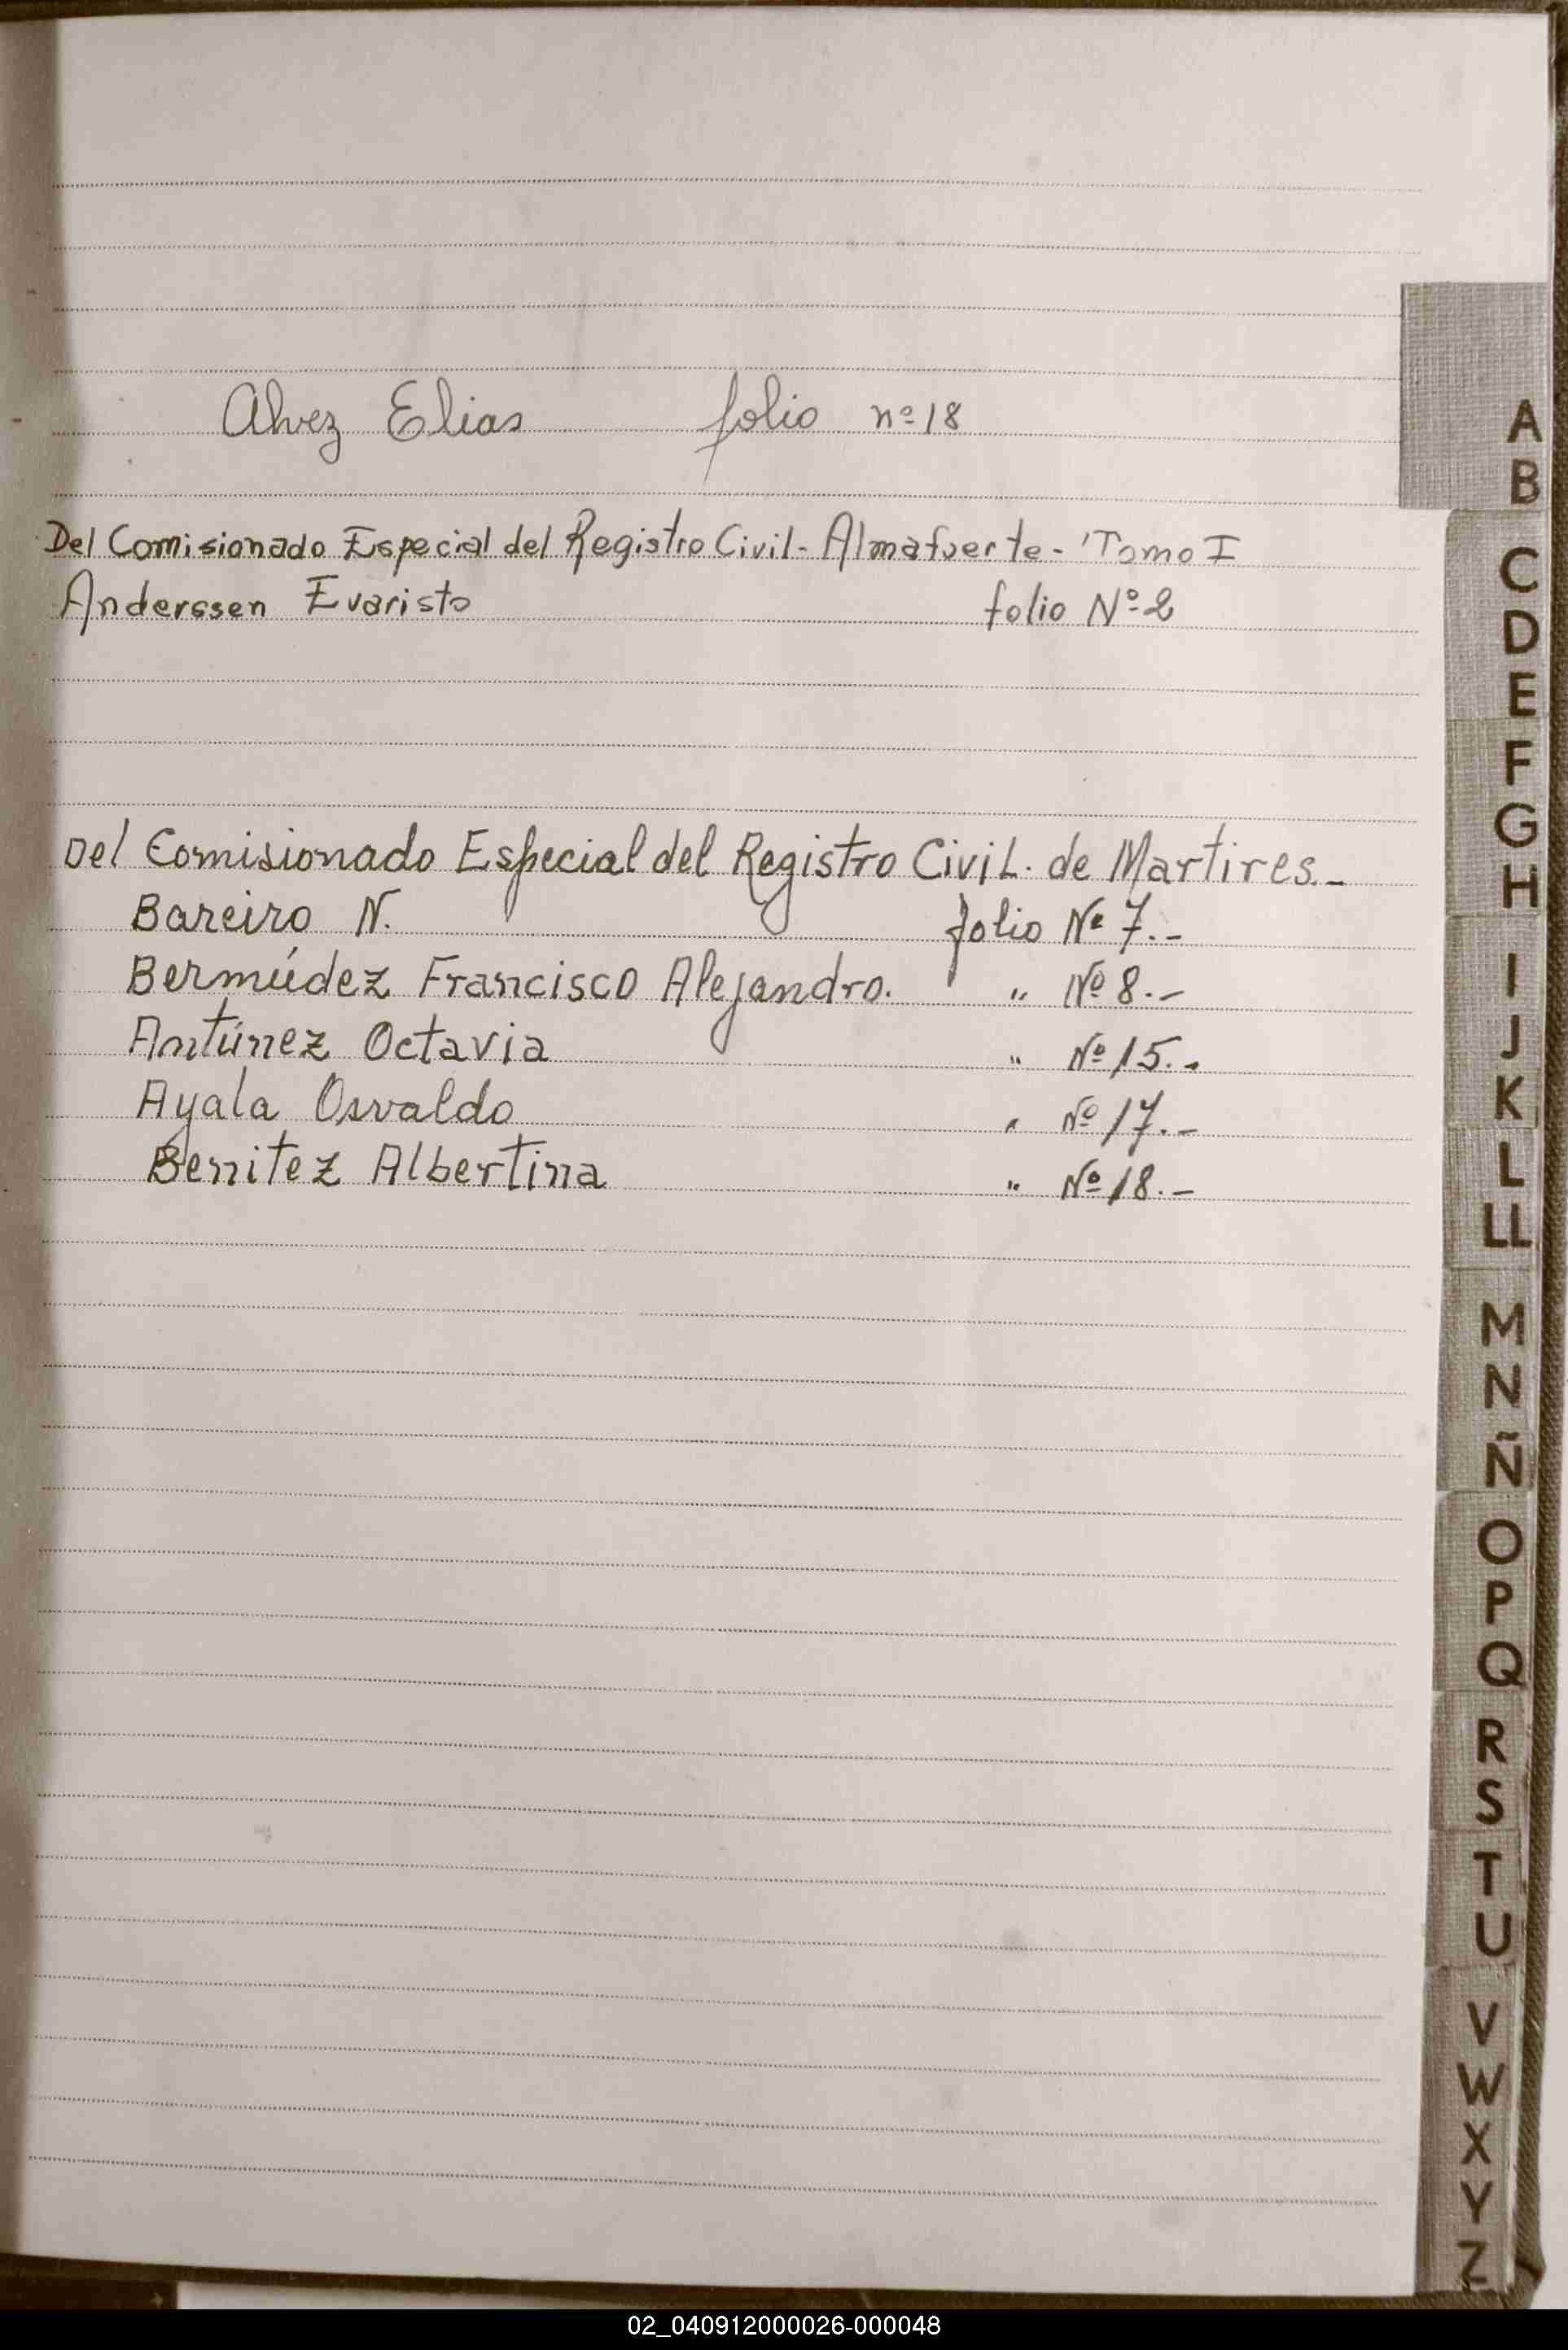 Alvez Elias folio nº 18
Del Comisionado Especial del Registro Civil - Almafuerte - Tomo I
Anderssen Evaristo folio Nº 2
Del Comisionado Especial del Registro Civil. de Martires.-
Bareiro N. folio Nº 7.-
Bermúdez Francisco Alejandro. " Nº 8.-
Antúnez Octavia " Nº 15.-
Ayala Osvaldo " Nº 17.-
Benitez Albertina " Nº 18.-
A
B
C
D
E
F
G
H
I
J
K
L
LL
M
N
Ñ
O
P
Q
R
S
T
U
V
W
X
Y
Z
02_040912000026-000048